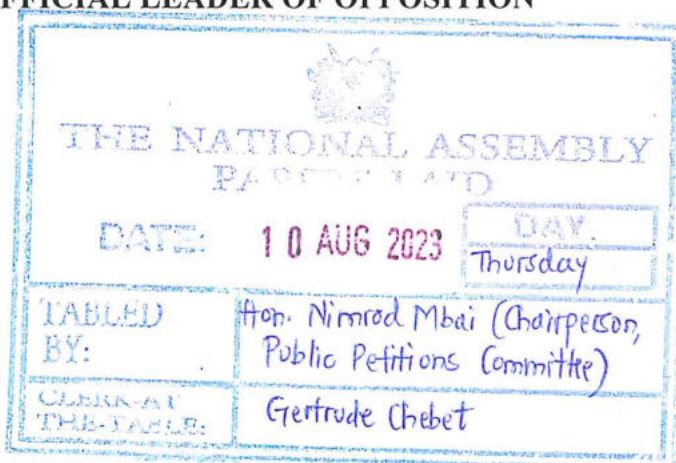 FFICIAL LEADER OF OPPOSITION
THE NATIONAL ASSEMBLY
PAPERS LAID
DATE: 10 AUG 2023
DAY.
Thursday
TABLED
BY:
Hon. Nimrod Mbai (Chairperson,
Public Petitions Committee)
CLERK-AT
THE-TABLE:
Gertrude Chebet